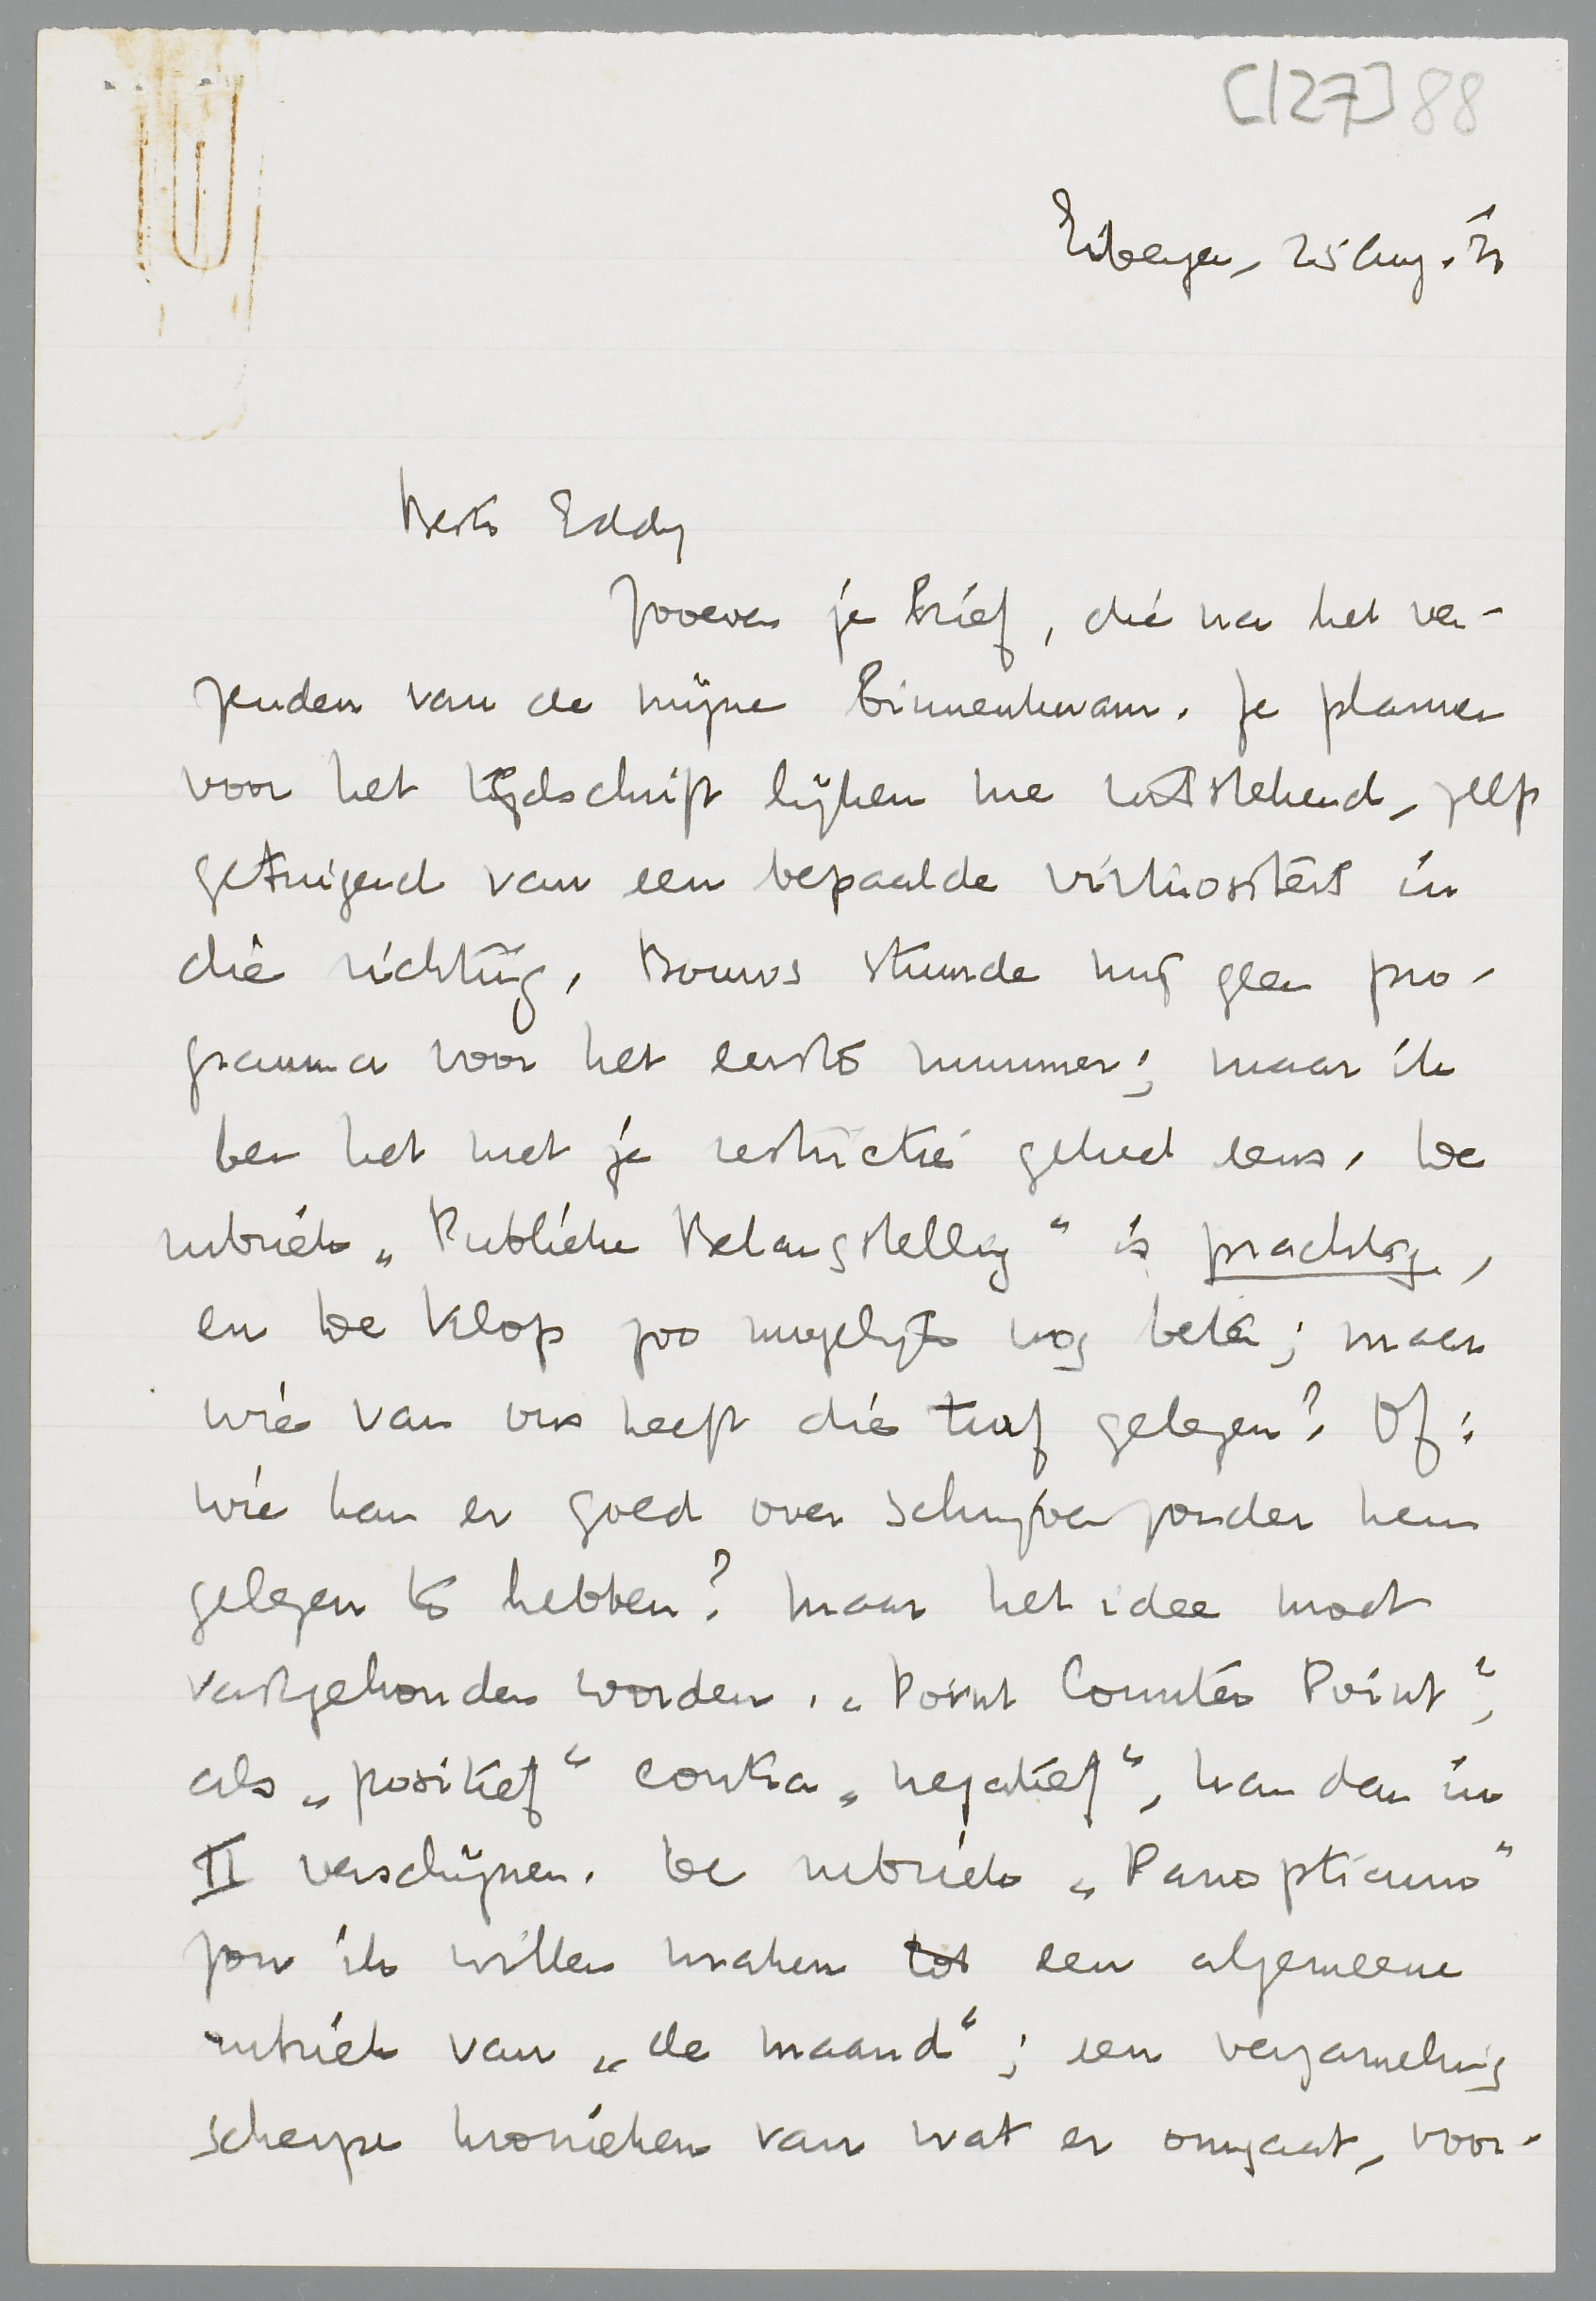 [127] 88
Eibergen, 25 Aug. '31
Beste Eddy
Zooeven je brief, die na het ver-
zenden van de mijne binnenkwam. Je plannen
voor het tijdschrift lijken me uitstekend, zelfs
getuigend van een bepaalde virtuositeit in
die richting. Bouws stuurde mij geen pro-
gramma voor het eerste nummer; maar ik
ben het met je restrictie geheel eens. De
rubriek „Publieke Belangstelling" is prachtig,
en De Klop zoo mogelijk nog beter; maar
wie van ons heeft die turf gelezen? Of:
wie kan er goed over schrijven zonder hem
gelezen te hebben? Maar het idee moet
vastgehouden worden. „Point Counter Point",
als „positief" contra „negatief", kan dan in
II verschijnen. De rubriek „Panopticum"
zou ik willen maken tot een algemeene
rubriek van „de maand"; een verzameling
scherpe kronieken van wat er omgaat, voor-